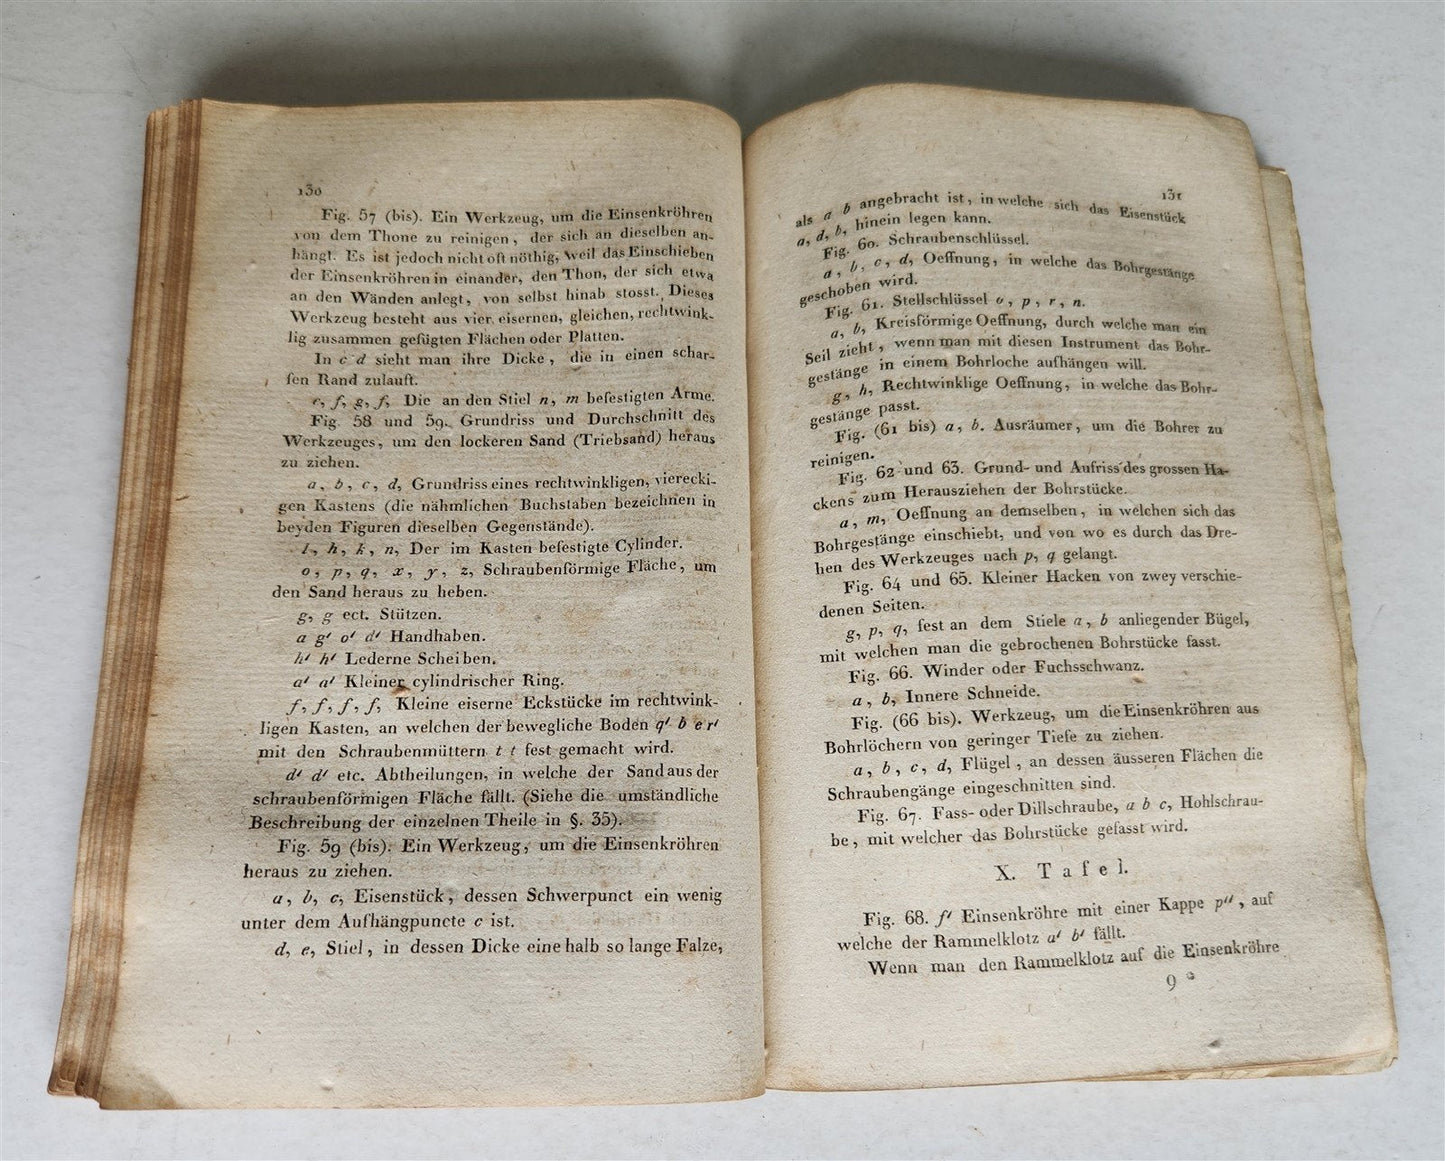 130
Fig. 57 (bis). Ein Werkzeug, um die Einsenkröhren
von dem Thone zu reinigen, der sich an dieselben an-
hängt. Es ist jedoch nicht oft nöthig, weil das Einschieben
der Einsenkröhren in einander, den Thon, der sich etwa
an den Wänden anlegt, von selbst hinab stosst. Dieses
Werkzeug besteht aus vier eisernen, gleichen, rechtwink-
lig zusammen gefügten Flächen oder Platten.
In c d sieht man ihre Dicke, die in einen schar-
fen Rand zulauft.
e, f, g, f, Die an den Stiel n, m befestigten Arme.
Fig. 58 und 59. Grundriss und Durchschnitt des
Werkzeuges, um den lockeren Sand (Triebsand) heraus
zu ziehen.
a, b, c, d, Grundriss eines rechtwinkligen, vierecki-
gen Kastens (die nähmlichen Buchstaben bezeichnen in
beyden Figuren dieselben Gegenstände).
l, h, k, n, Der im Kasten befestigte Cylinder.
o, p, q, x, y, z, Schraubenförmige Fläche, um
den Sand heraus zu heben.
g, g ect. Stützen.
a g' o' d' Handhaben.
h' h' Lederne Scheiben.
a' a' Kleiner cylindrischer Ring.
f, f, f, f, Kleine eiserne Eckstücke im rechtwink-
ligen Kasten, an welchen der bewegliche Boden q' b e r'
mit den Schraubenmüttern t t fest gemacht wird.
d' d' etc. Abtheilungen, in welche der Sand aus der
schraubenförmigen Fläche fällt. (Siehe die umständliche
Beschreibung der einzelnen Theile in §. 35).
Fig. 59 (bis). Ein Werkzeug, um die Einsenkröhren
heraus zu ziehen.
a, b, c, Eisenstück, dessen Schwerpunct ein wenig
unter dem Aufhängpuncte c ist.
d, e, Stiel, in dessen Dicke eine halb so lange Falze,
131
als a b angebracht ist, in welche sich das Eisenstück
a, d, b, hinein legen kann.
Fig. 60. Schraubenschlüssel.
a, b, c, d, Oeffnung, in welche das Bohrgestänge
geschoben wird.
Fig. 61. Stellschlüssel o, p, r, n.
a, b, Kreisförmige Oeffnung, durch welche man ein
Seil zieht, wenn man mit diesen Instrument das Bohr-
gestänge in einem Bohrloche aufhängen will.
g, h, Rechtwinklige Oeffnung, in welche das Bohr-
gestänge passt.
Fig. (61 bis) a, b. Ausräumer, um die Bohrer zu
reinigen.
Fig. 62 und 63. Grund- und Aufriss des grossen Ha-
ckens zum Herausziehen der Bohrstücke.
a, m, Oeffnung an demselben, in welchen sich das
Bohrgestänge einschiebt, und von wo es durch das Dre-
hen des Werkzeuges nach p, q gelangt.
Fig. 64 und 65. Kleiner Hacken von zwey verschie-
denen Seiten.
g, p, q, fest an dem Stiele a, b anliegender Bügel,
mit welchen man die gebrochenen Bohrstücke fasst.
Fig. 66. Winder oder Fuchsschwanz.
a, b, Innere Schneide.
Fig. (66 bis). Werkzeug, um die Einsenkröhren aus
Bohrlöchern von geringer Tiefe zu ziehen.
a, b, c, d, Flügel, an dessen äusseren Flächen die
Schraubengänge eingeschnitten sind.
Fig. 67. Fass- oder Dillschraube, a b c, Hohlschrau-
be, mit welcher das Bohrstücke gefasst wird.
X. Tafel.
Fig. 68. f' Einsenkröhre mit einer Kappe p'', auf
welche der Rammelklotz a' b' fällt.
Wenn man den Rammelklotz auf die Einsenkröhre
9 *